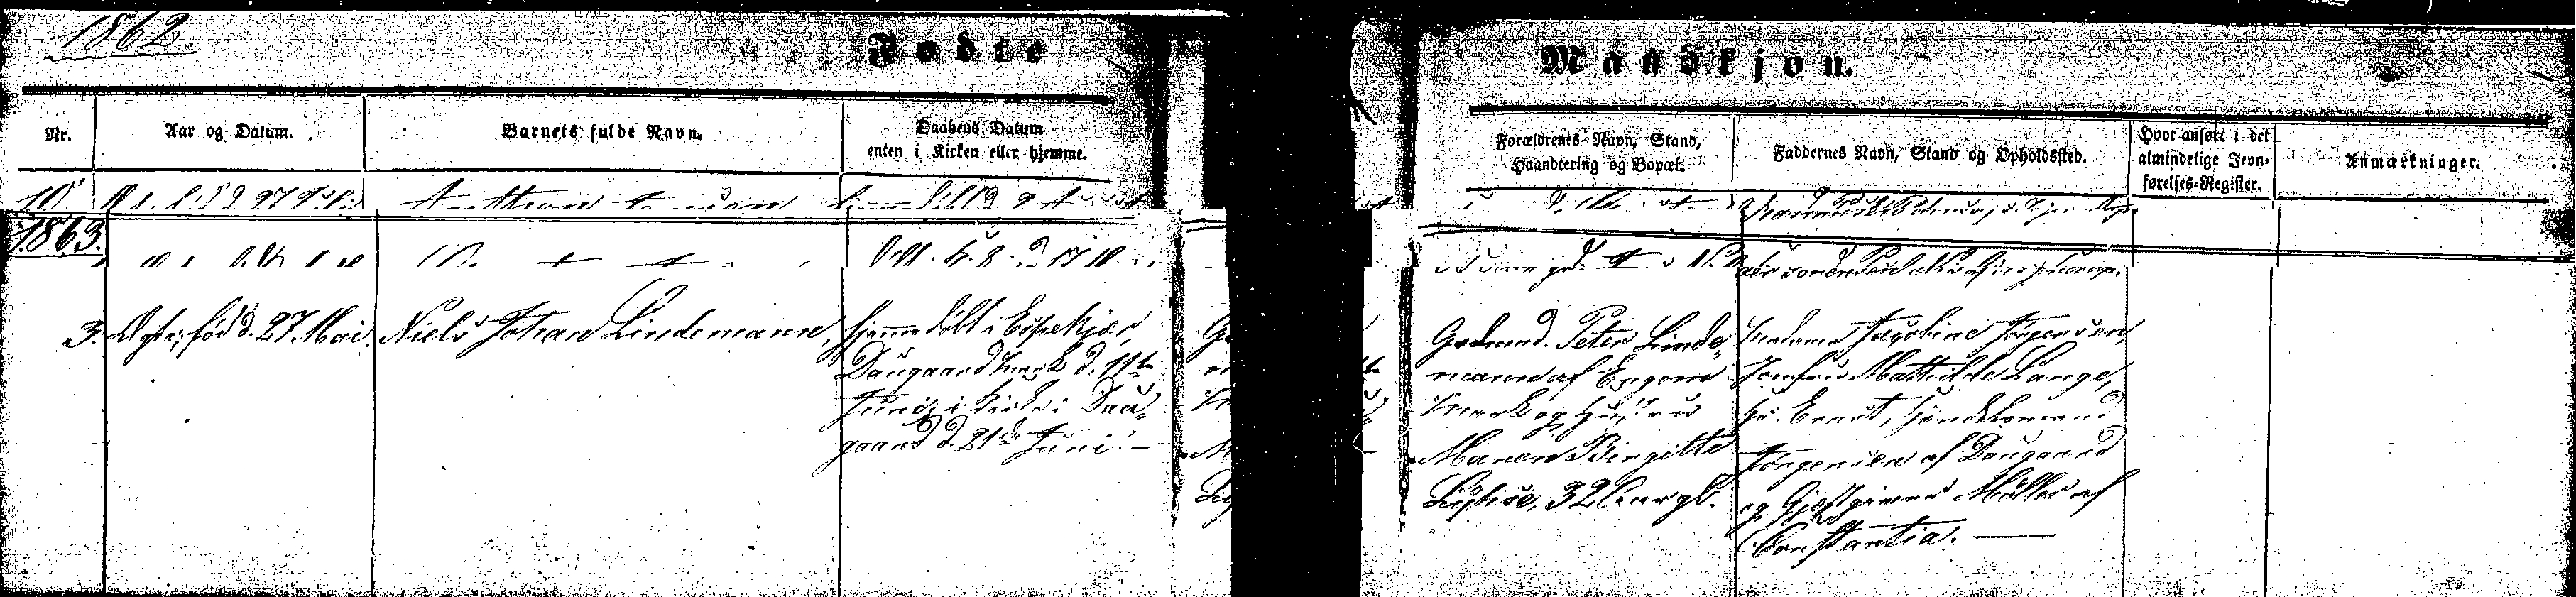 1862.
Fødte
Mandkjøn.
Nr.
Aar og Datum.
Barnets fulde Navn.
Daabens Datum
enten i Kirken eller hjemme.
Forældrenes Navn, Stand,
Haandtering og Bopæl.
Faddernes Navn, Stand og Opholdssted.
Hvor anført i det
almindelige Jevn-
førelses-Register.
Anmærkninger.
1863.
3. Ægte, fød d. 27. Mai.
Niels Johan Lindemann,
hjemmedøbt i Espekjær,
Daugaard Mark d. 11te
Juni, i Kirke i Dau-
gaard d. 21de Juni.
Gaardmd. Peter Linde-
mann af Engom
Mark og Hustru
Maren Birgitte
32 Aar gl.
Madame Jacobine Jørgensen,
Jomfru Mathilde Lange,
Hr. Ernst, Handelsmand
Jørgensen af Daugaard
og Gjestgiver Møller af
Constantia.